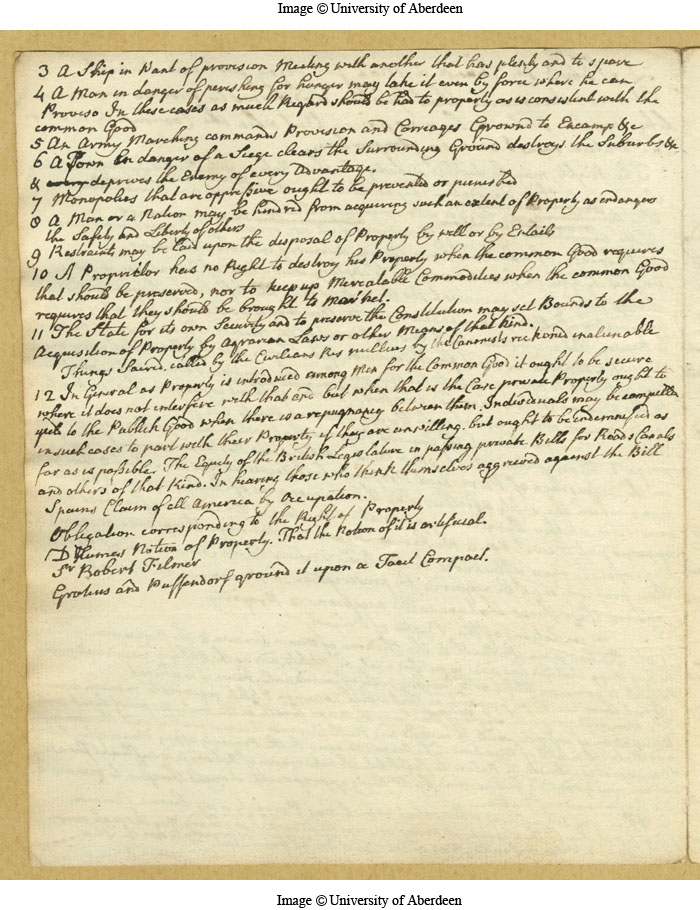 Image © University of Aberdeen
3 A Ship in Want of provision Meeting with another that has plenty and to spare
4 A Man in danger of perishing for hunger may take it even by force where he can
Proviso In these cases as much Regard should be had to property as is consistent with the
common Good
5 An Army Marching commands Provision and Carreages Ground to Encamp &c
6 A Town in danger of a Siege clears the Surrounding Ground destroys the Suburbs &c
& every deprives the Enemy of every Advantage.
7 Monopolies that are oppressive ought to be prevented or punished
8 A Man or a Nation may be hindred from acquiring such an extent of Property as endangers
the Safety and Liberty of others
9 Restraints may be laid upon the disposal of Property by will or by Entails
10 A Proprietor has no Right to destroy his Property when the common Good requires
that should be preserved, nor to keep up Mercatable Commodities when the common Good
requires that they should be brought to market.
11 The State for its own Security and to preserve the Constitution may set Bounds to the
Acquisition of Property by Agrarian Laws or other Means of that kind.
Things Sacred, called by the Civilians Res nullius by the Canonists reckoned inalienable
12 In General as Property is introduced among Men for the Common Good it ought to be secure
where it does not interfere with that end but when that is the Case private Property ought to
yield to the Publick Good when there is a repugnancy between them. Individuals may be compelled
in such cases to part with their Property if they are unwilling, but ought to be indemnified as
far as is possible. The Equity of the British Legislature in passing private Bills for Roads Canals
and others of that Kind. In hearing those who think themselves aggrieved against the Bill
Spains Claim of all America by Occupation.
Obligation corresponding to the Right of Property
D Humes Notion of Property. That the Notion of it is artificial.
Sr Robert Filmer
Grotius and Puffendorf ground it upon a Tacit Compact.
Image © University of Aberdeen